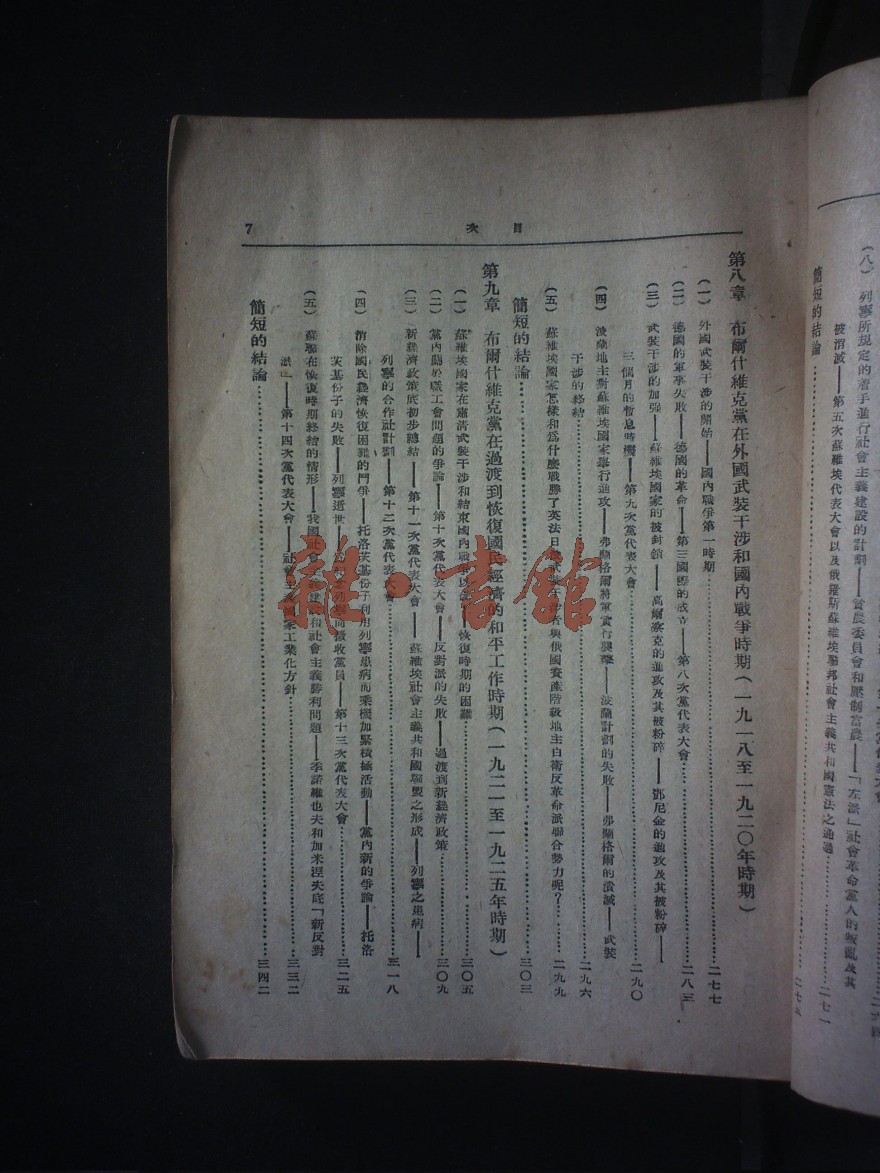 （八）列寧所規定的着手進行社會主義建設的計劃——貧農委員會和壓制富農——「左派」社會革命黨人的叛亂及其
被消滅——第五次蘇維埃代表大會以及俄羅斯蘇維埃聯邦社會主義共和國憲法之通過…………二七一
簡短的結論…………二七五
目　次　7
第八章　布爾什維克黨在外國武裝干涉和國內戰爭時期（一九一八至一九二〇年時期）
（一）外國武裝干涉的開始——國內戰爭第一時期…………二七七
（二）德國的軍事失敗——德國的革命——第三國際的成立——第八次黨代表大會…………二八三
（三）武裝干涉的加强——蘇維埃國家的被封鎖——高爾察克的進攻及其被粉碎——鄧尼金的進攻及其被粉碎——
三個月的暫息時機——第九次黨代表大會…………二九〇
（四）波蘭地主對蘇維埃國家舉行進攻——弗蘭格爾將軍實行襲擊——波蘭計劃的失敗——弗蘭格爾的潰滅——武裝
干涉的終結…………二九六
（五）蘇維埃國家怎樣和爲什麽戰勝了英法日波武裝干涉者與俄國資產階級地主白衛反革命派聯合勢力呢？…………二九九
簡短的結論…………三〇三
第九章　布爾什維克黨在過渡到恢復國民經濟的和平工作時期（一九二一至一九二五年時期）
（一）蘇維埃國家在肅清武裝干涉和結束國內戰爭以後——恢復時期的困難…………三〇五
（二）黨內關於職工會問題的爭論——第十次黨代表大會——反對派的失敗——過渡到新經濟政策…………三〇九
（三）新經濟政策底初步總結——第十一次黨代表大會——蘇維埃社會主義共和國聯盟之形成——列寧之患病——
列寧的合作社計劃——第十二次黨代表大會…………三一八
（四）消除國民經濟恢復困難的鬥爭——托洛茨基份子利用列寧患病而乘機加緊積極活動——黨內新的爭論——托洛
茨基份子的失敗——列寧逝世——爲紀念列寧而徵收黨員——第十三次黨代表大會…………三二五
（五）蘇聯在恢復時期終結的情形——我國社會主義建設和社會主義勝利問題——季諾維也夫和加米涅夫底「新反對
派」——第十四次黨代表大會——社會主義國家工業化方針…………三三二
簡短的結論…………三四二
雜·書館